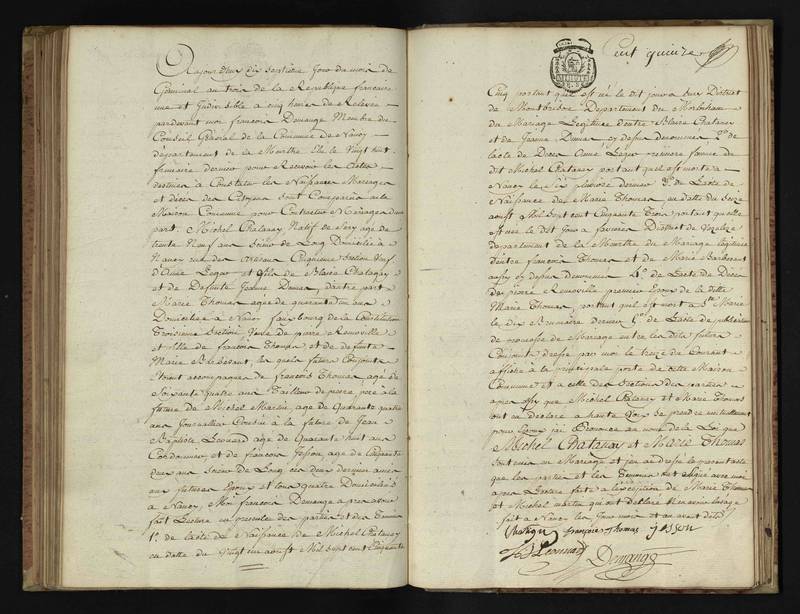 Aujourd'huy dix Septieme Jour du mois de
Germinal an trois de la République francaise
une et Indivisible a cinq heures de Relevée
pardevant moi françois Demange Membre du
Conseil Général de la Commune de Nancy
département de la Meurthe Elu le vingt huit
frimaire dernier pour Recevoir les Actes
destinés a Constater les Naissances Mariages
et décès des Citoyens Sont Comparus en la
Maison Commune pour Contracter Mariage d'une
part Michel Chatenay Natif de age de
trente Neuf ans Scieur de Long Domicilié a
Nancy rue des Cinquieme Section Veuf
d'Anne Leger et fils de Blaise Chatenay
et de Defunte Jeanne Dumas, d'autre part
Marie Thomas agée de quarante un ans
Domiciliée a Nancy fauxbourg de la Constitution
Troisieme Section Veuve de pierre Renoville
et fille de francois Thomas et de defunte
Marie Barbesant, les quels futurs Conjoints
Etoient accompagnés de francois Thomas agé de
Soixante quatre ans Tailleur de pierre pere a la
future de Michel Martin agé de Quarante quatre
ans Journallier Cousin a la future de Jean
Baptiste Leonard agé de Quarante huit ans
Cordonnier et de francois Jesson agé de Cinquante
deux ans Scieur de Long ces deux derniers amis
aux futures Epoux et tous quatre Domiciliés
a Nancy, Moi francois Demange apres avoir
fait Lecture en presence des parties et des Temoins
1°. de l'acte de Naissance de Michel Chatenay
en datte du Vingt un aoust Mil Sept cent Cinquante
cent quinze
Cinq portant qu'il est né le dit jour a District
de Montbrison Département du
du Mariage Légitime d'entre Blaise Chatenay
et de Jeanne Dumas cy dessus denommés 2°. de
l'acte de Décès d'Anne Leger premiere femme du
dit Michel Chatenay portant qu'elle est morte a
Nancy le Six pluviose dernier 3°. de L'acte de
Naissance de Marie Thomas en datte du Seize
aoust Mil Sept cent Cinquante Trois portant qu'elle
est née le dit Jour a favieres District de Vezelize
departement de la Meurthe du Mariage légitime
d'entre francois Thomas et de Marie Barbesant
aussy cy dessus denommés 4°. de L'acte de Décès
de pierre Renoville premier Epoux de la ditte
Marie Thomas, portant qu'il est mort a Ste Marie
le dix Brumaire dernier 5°. de L'acte de publication
de promesse de Mariage entre les dits futurs
Conjoints dressé par moi le treize du Courant
affiché a la principale porte de cette Maison
Commune et a celle des Sections des mariés
apres aussy que Michel Chatenay et Marie Thomas
ont eu declaré a haute Voix Se prendre mutuellement
pour Epoux jai Prononcé au nom de la Loi que
Michel Chatenay et Marie Thomas
Sont unis en Mariage et j'en ai dressé le present acte
que les parties et les Temoins ont Signé avec moi
apres Lecture faite a l'exception de Marie Thomas
et Michel martin qui ont déclaré n'en avoir l'usage
fait a Nancy les Jour mois et an avant dits
Chatenay françois Thomas jesson
JB Leonard Demange